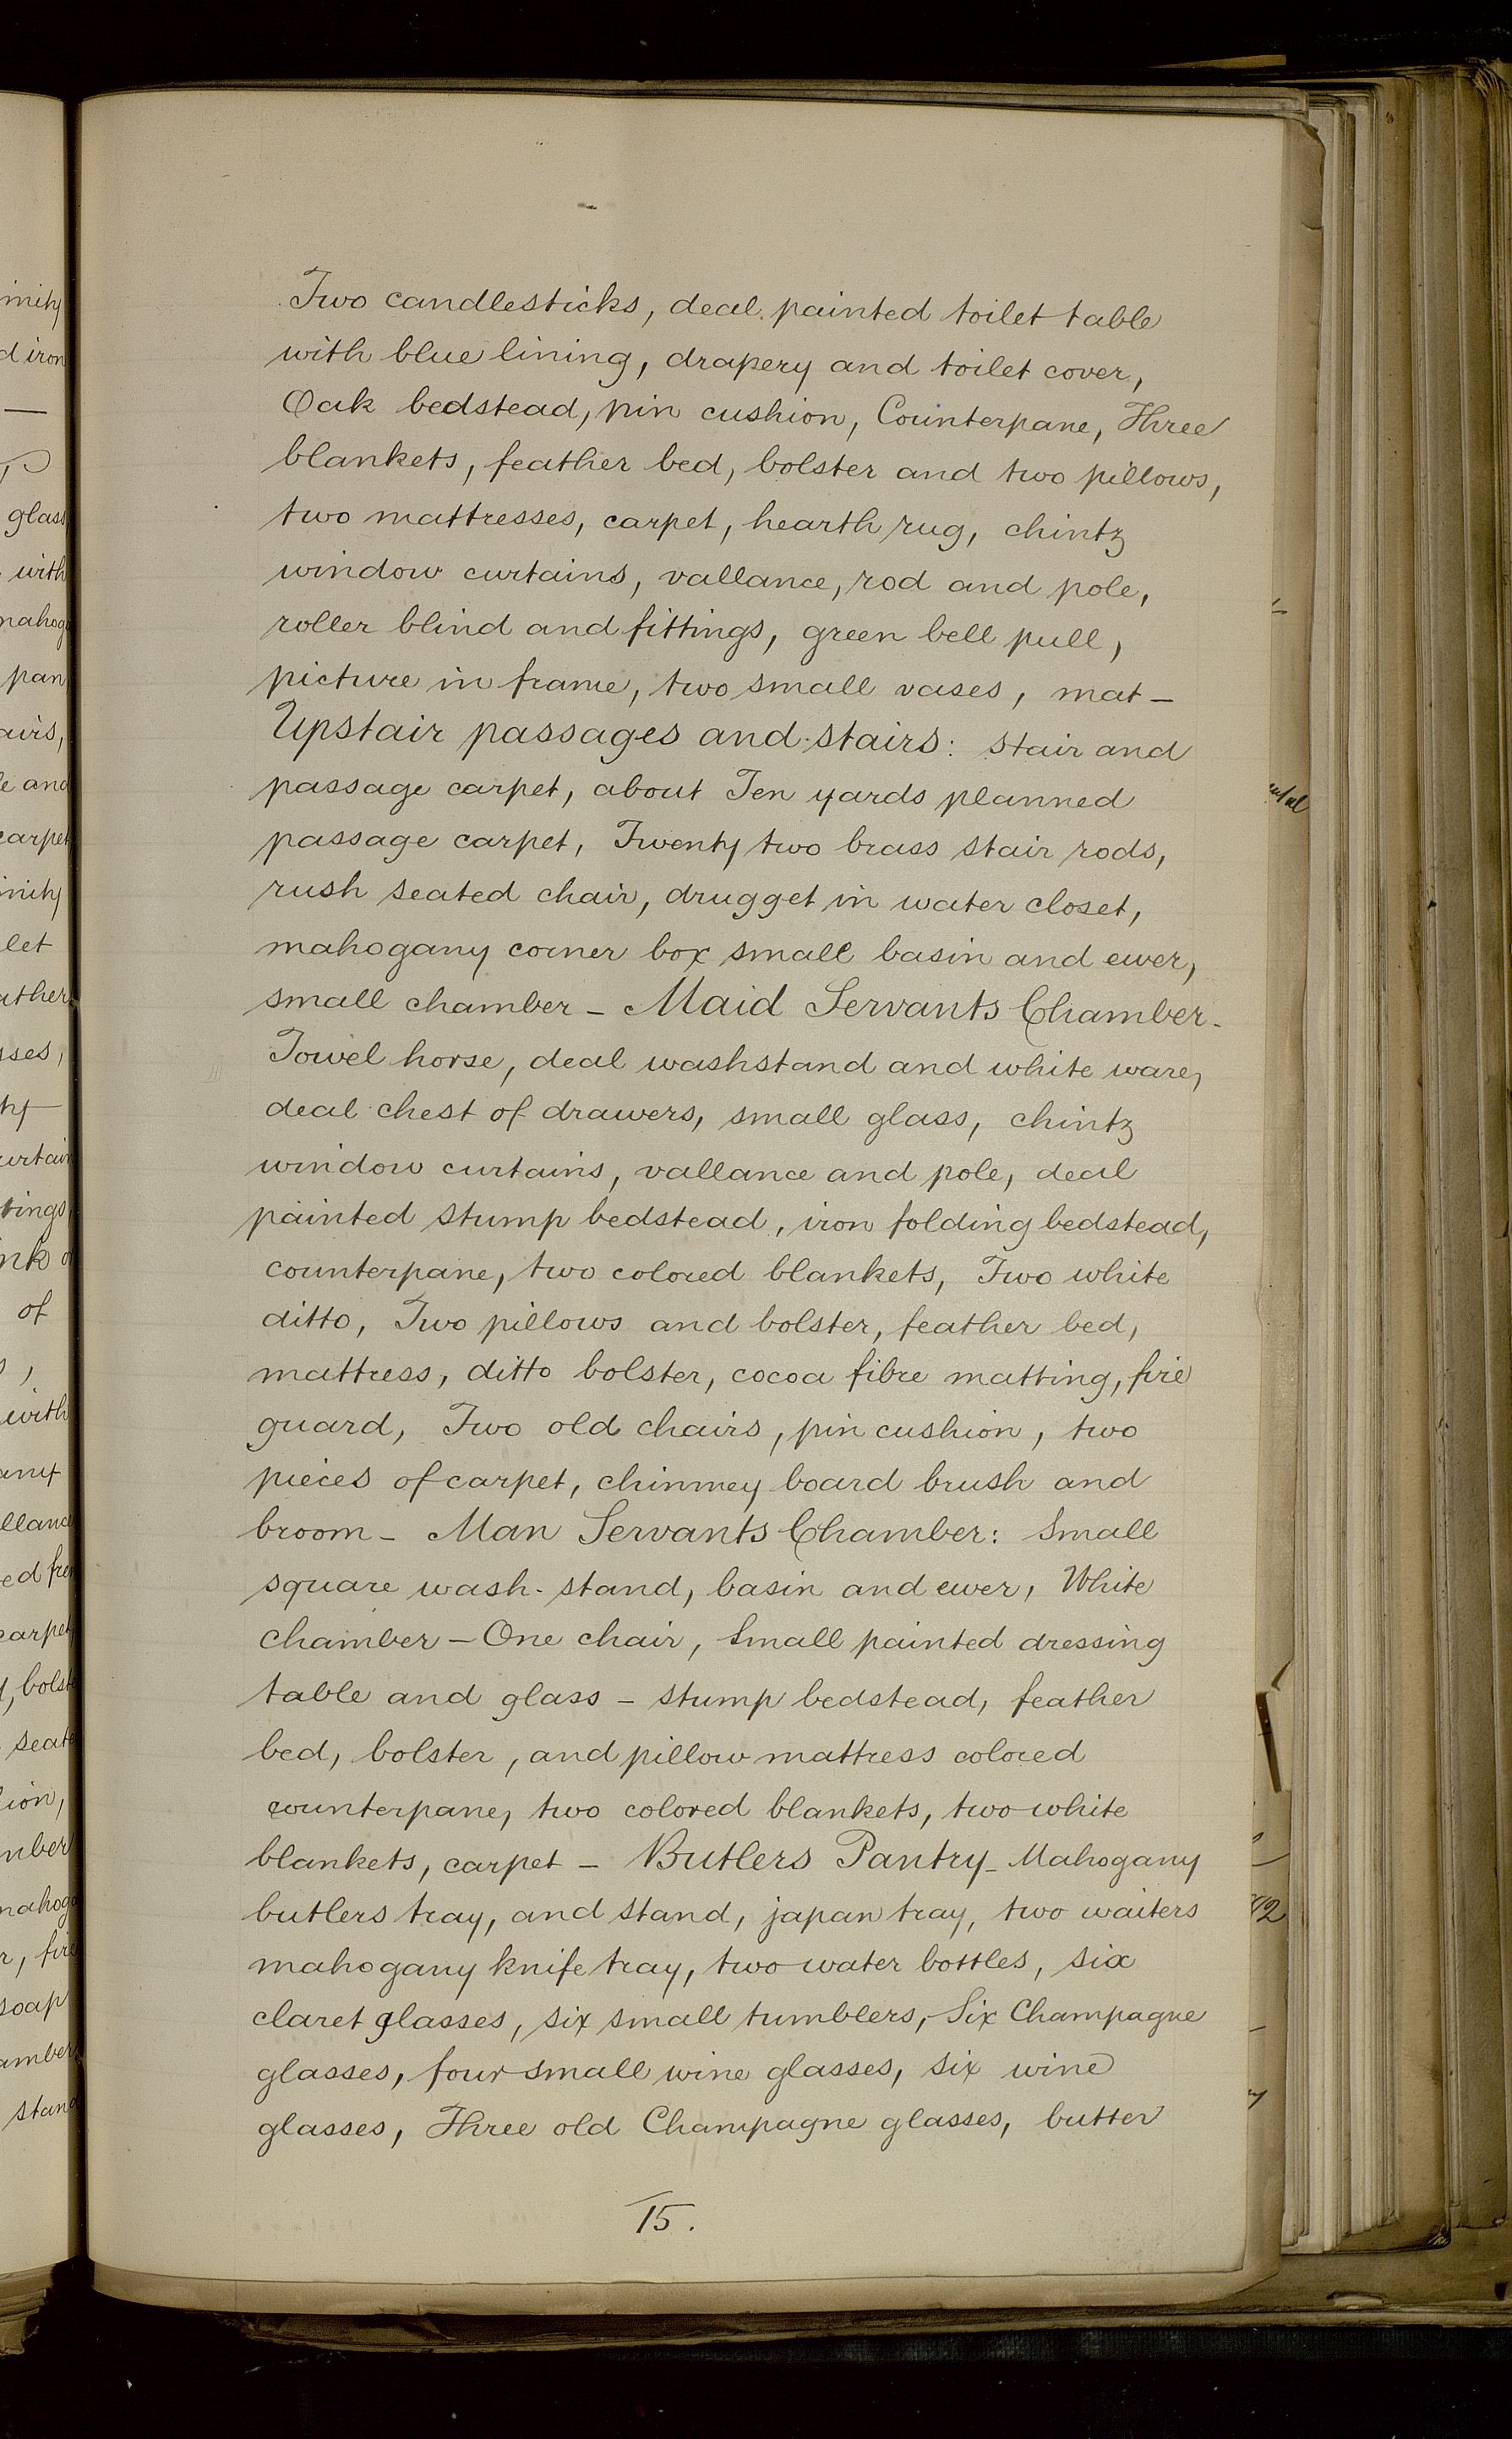 Two candlesticks, deal painted toilet table
with blue lining, drapery and toilet cover,
Oak bedstead, pin cushion, Counterpane, Three
blankets, feather bed, bolster and two pillows,
two mattresses, carpet, hearth rug, chintz
window curtains, vallance, rod and pole,
roller blind and fittings, green bell pull,
picture in frame, two small vases, mat –
Upstair passages and stairs: stair and
passage carpet, about Ten yards planned
passage carpet, Twenty two brass stair rods,
rush seated chair, drugget in water closet,
mahogany corner box small basin and ewer,
small chamber – Maid Servants Chamber.
Towel horse, deal washstand and white ware,
deal chest of drawers, small glass, chintz
window curtains, vallance and pole, deal
painted stump bedstead, iron folding bedstead,
counterpane, two colored blankets, Two white
ditto, Two pillows and bolster, feather bed,
mattress, ditto bolster, cocoa fibre matting, fire
guard, Two old chairs, pin cushion, two
pieces of carpet, chimney board brush and
broom – Man Servants Chamber: Small
square wash-stand, basin and ewer, White
chamber – One chair, Small painted dressing
table and glass – stump bedstead, feather
bed, bolster, and pillow mattress colored
counterpane, two colored blankets, two white
blankets, carpet – Butlers Pantry – Mahogany
butlers tray, and stand, japan tray, two waiters
mahogany knife tray, two water bottles, six
claret glasses, six small tumblers, Six Champagne
glasses, four small wine glasses, six wine
glasses, Three old Champagne glasses, butter
15.